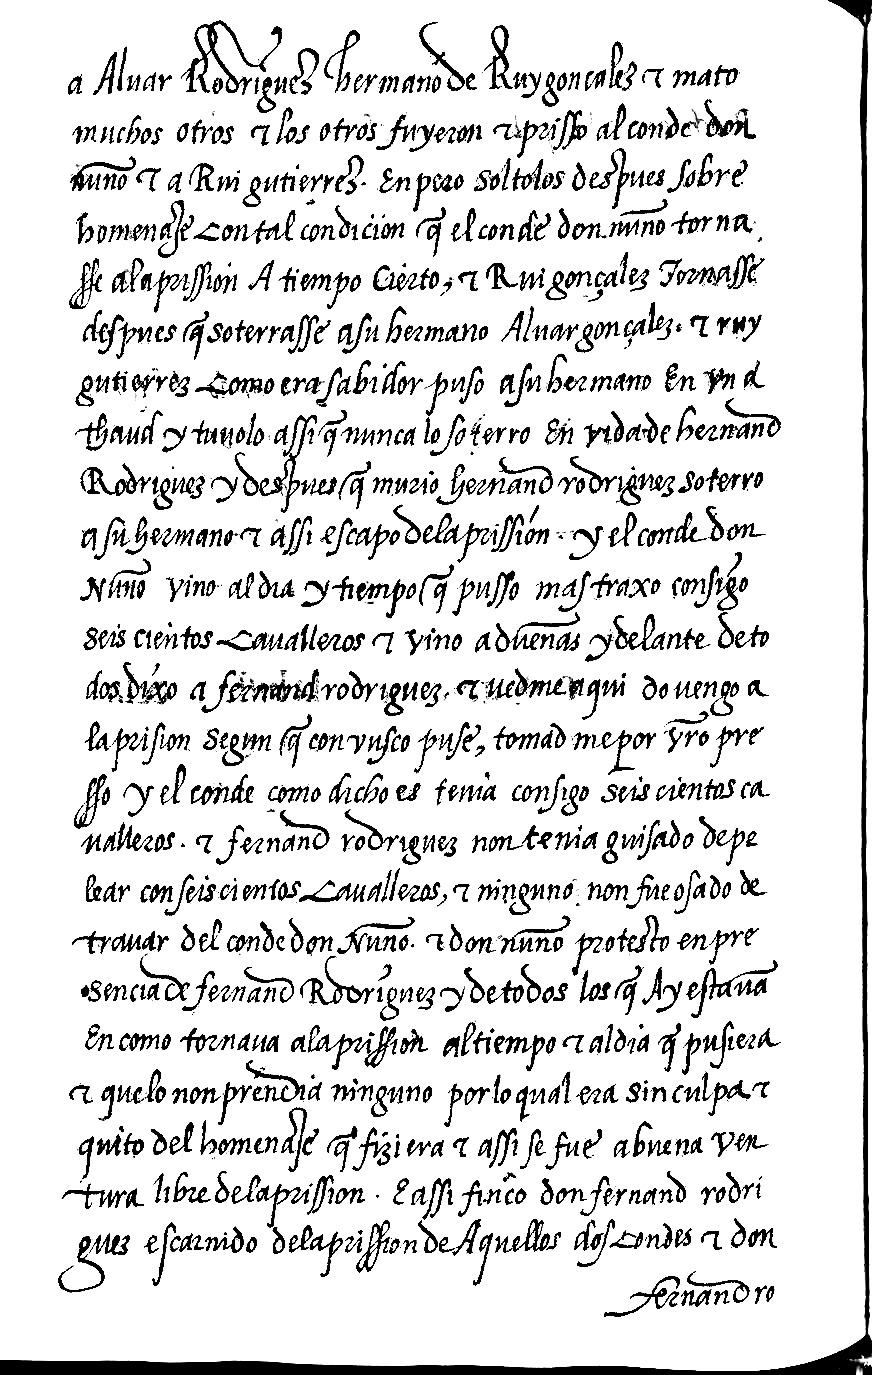 a Aluar Rodriguez hermano de Ruy gonçalez τ mato
muchos otros τ los otros fuyeron τ prisso al conde don
nuño τ a Rui gutierrez. En pero soltolos despues sobre
homenaje Con tal condicion q̃ el conde don nuño torna
sse ala prission A tiempo Cierto, τ Rui gonçalez Tornasse
despues q̃ soterrasse a su hermano Aluar gonçalez. τ ruy
gutierrez Como era sabidor puso a su hermano En vn a
thaud y tuuolo assi q̃ nunca lo soterro En vida de hernand
Rodriguez y despues q̃ murio hernand rodriguez soterro
a su hermano τ assi escapo dela prissión. y el conde don
Nuño vino al dia y tiempo q̃ pusso mas traxo consigo
seis cientos Cavalleros τ vino a dueñas y delante de to
dos dixo a fernand rodriguez. τ uedme aqui do uengo a
la prision segun q̃ con vusco puse, tomad me por vr̃o pre
sso y el conde como dicho es tenia consigo seis cientos ca
ualleros. τ fernand rodriguez non tenia guisado de pe
lear con seis cientos Caualleros, τ ninguno non fue osado de
trauar del conde don Nuño. τ don nuño protesto en pre
sencia de fernand Rodriguez y de todos los q̃ Ay estauã
En como tornaua ala prission al tiempo τ al dia q̃ pusiera
τ que lo non prendia ninguno por lo qual era sin culpa τ
quito del homenaje q̃ fiziera τ assi se fue a buena ven
tura libre dela prission. E assi finco don fernand rodri
guez escarnido dela prission de Aquellos dos Condes τ don
fernand ro